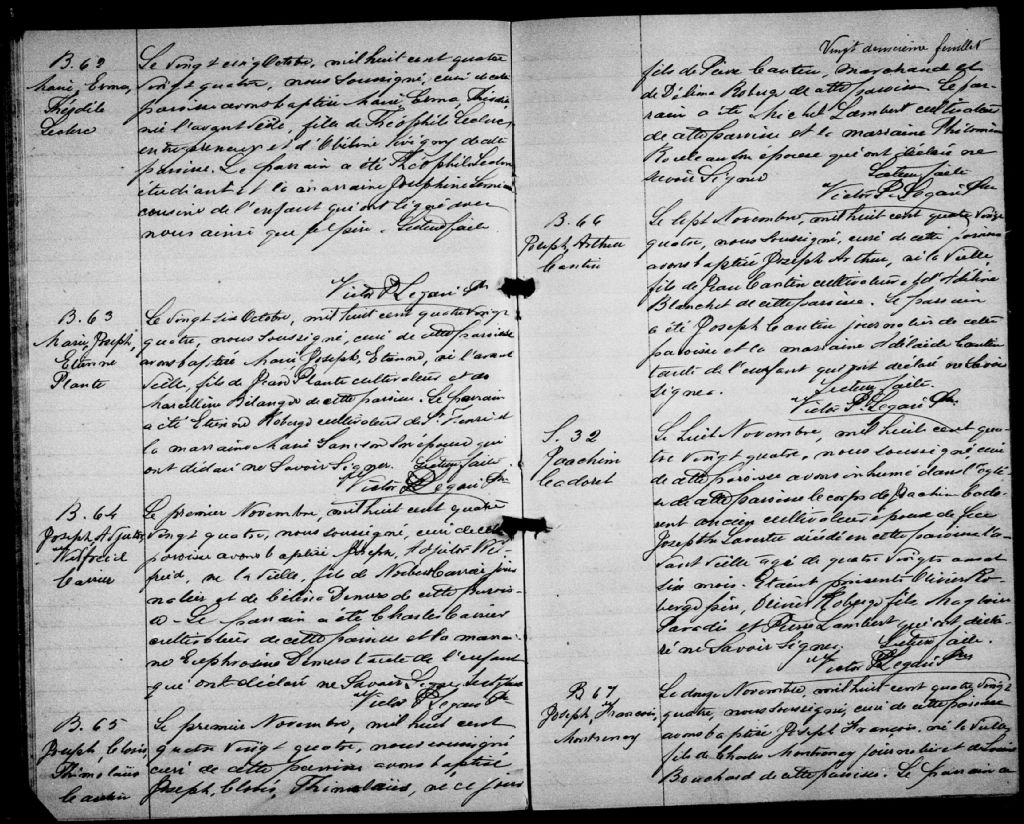 B. 62
Marie, Erma,
Leclerc
Le vingt cinq Octobre, mil huit cent quatre
vingt quatre, nous soussigné, curé de cette
paroisse avons baptisé Marie, Erma,
née l'avant veille, fille de Théophile Leclerc,
entrepreneur et d' de cette
paroisse. Le parrain a été Théophile Leclerc
étudiant et la marraine Josephine
cousine de l'enfant qui ont signé avec
nous ainsi que le père. Lecture faite.
Victor P. Legaré Ptre
B. 63
Marie, Joseph,
Etienne
Plante
Le vingt six Octobre, mil huit cent quatre vingt
quatre, nous soussigné, curé de cette paroisse
avons baptisé Marie, Joseph, Etienne, né l'avant
veille, fils de Jean Plante cultivateur et de
Marcelline Bélanger de cette paroisse. Le parrain
a été Etienne Roberge cultivateur de St. Henri et
la marraine Marie Samson son épouse qui
ont déclaré ne savoir signer. Lecture faite
Victor P. Legaré Ptre
B. 64
Joseph Adjutor
Wilfreid
Carrier
Le premier Novembre, mil huit cent quatre
vingt quatre, nous soussigné, curé de cette
paroisse avons baptisé Joseph, Adjutor Wil-
freid, né la veille, fils de Norbert Carrier jour
nalier et de Célina Demers de cette parois-
se. Le parrain a été Charles Carrier
cultivateur de cette paroisse et la marrai-
ne Euphrosine Demers tante de l'enfant
qui ont déclaré ne savoir signer. Lecture faite
Victor P. Legaré Ptre
B. 65
Joseph, Clovis,
Thimolaüs
Cantin
Le premier Novembre, mil huit cent
quatre vingt quatre, nous soussigné
curé de cette paroisse avons baptisé
Joseph, Clovis, Thimolaüs, né ce jour
Vingt deuxième feuillet
fils de Pierre Cantin, marchand et
de Délima Roberge de cette paroisse. Le par-
rain a été Michel Lambert cultivateur
de cette paroisse et la marraine Philomène
son épouse qui ont déclaré ne
savoir signer. Lecture faite
Victor P. Legaré Ptre
B. 66
Joseph, Arthur
Cantin
Le sept Novembre, mil huit cent quatre vingt
quatre, nous soussigné, curé de cette paroisse
avons baptisé Joseph Arthur, né la veille
fils de Jean Cantin cultivateur et d'Adeline
Blanchet de cette paroisse. Le parrain
a été Joseph Cantin journalier de cette
paroisse et la marraine Adelaide Cantin
tante de l'enfant qui ont déclaré ne savoir
signer. Lecture faite.
Victor P. Legaré Ptre
S. 32
Joachim
Cadoret
Le huit Novembre, mil huit cent qua-
tre vingt quatre, nous soussigné curé
de cette paroisse avons inhumé dans l'égli
se de cette paroisse le corps de Joachim Cado-
ret ancien cultivateur époux de feue
Josephte Laverté décédé en cette paroisse l'a-
vant veille agé de quatre vingts ans et
six mois. Etaient présents Olivier Ro-
berge père, Olivier Roberge fils, Magloire
Paradis et Pierre Lambert qui ont décla-
ré ne savoir signer. Lecture faite.
Victor P. Legaré Ptre
B 67
Joseph, François,
Montreney
Le douze Novembre, mil huit cent quatre vingt
quatre, nous soussigné, curé de cette paroisse
avons baptisé Joseph François, né la veille
fils de Charles Montreney journalier et de Louise
Bouchard de cette paroisse. Le parrain a